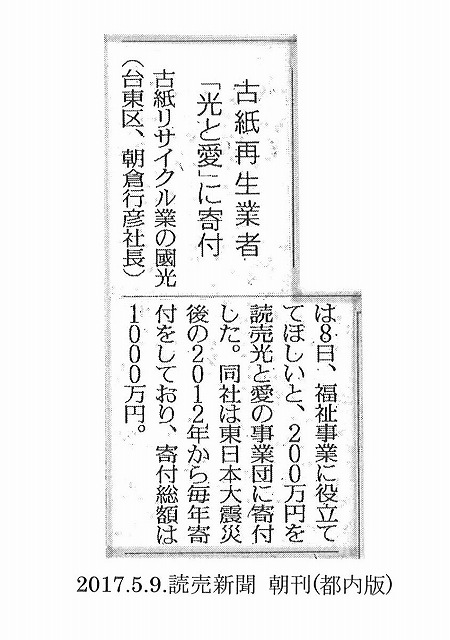 古紙再生業者
「光と愛」に寄付
古紙リサイクル業の國光
（台東区、朝倉行彦社長）
は8日、福祉事業に役立て
てほしいと、200万円を
読売光と愛の事業団に寄付
した。同社は東日本大震災
後の2012年から毎年寄
付をしており、寄付総額は
1000万円。
2017.5.9.読売新聞 朝刊(都内版)